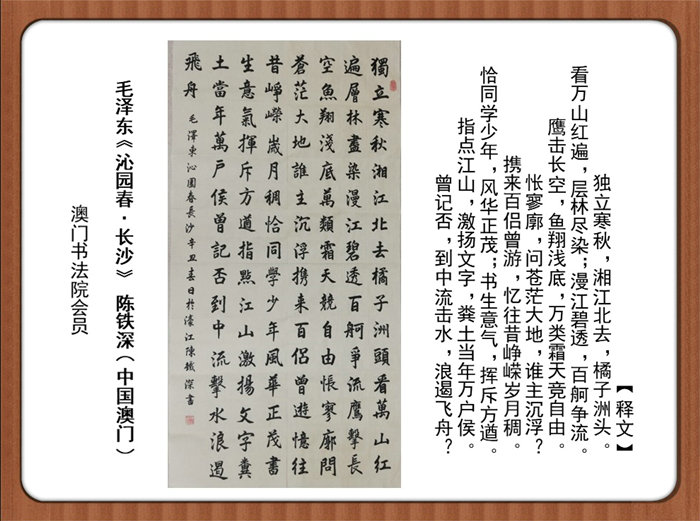 【释文】
独立寒秋，湘江北去，橘子洲头。
看万山红遍，层林尽染；漫江碧透，百舸争流。
鹰击长空，鱼翔浅底，万类霜天竞自由。
怅寥廓，问苍茫大地，谁主沉浮？
携来百侣曾游，忆往昔峥嵘岁月稠。
恰同学少年，风华正茂；书生意气，挥斥方遒。
指点江山，激扬文字，粪土当年万户侯。
曾记否，到中流击水，浪遏飞舟？
獨立寒秋湘江北去橘子洲頭看萬山紅
遍層林盡染漫江碧透百舸爭流鷹擊長
空魚翔淺底萬類霜天競自由悵寥廓問
蒼茫大地誰主沉浮携来百侣曾遊憶往
昔崢嶸歲月稠恰同學少年風華正茂書
生意氣揮斥方遒指點江山激揚文字糞
土當年萬戶侯曾記否到中流擊水浪遏
飛舟 毛澤東沁園春長沙辛丑春日於濠江陳鐵深書
毛泽东《沁园春·长沙》 陈铁深（中国澳门）
澳门书法院会员